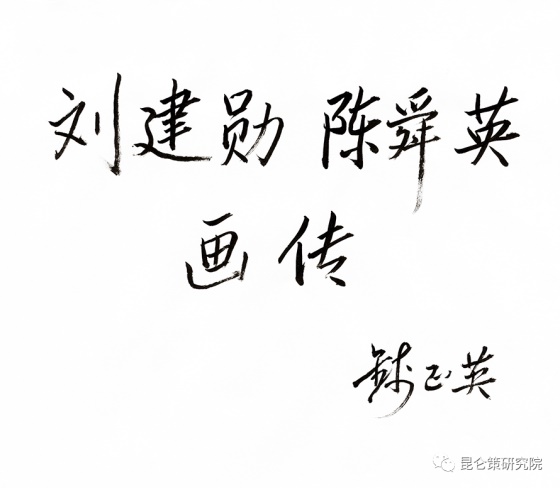 刘建勋 陈舜英
画传
钱正英
昆仑策研究院